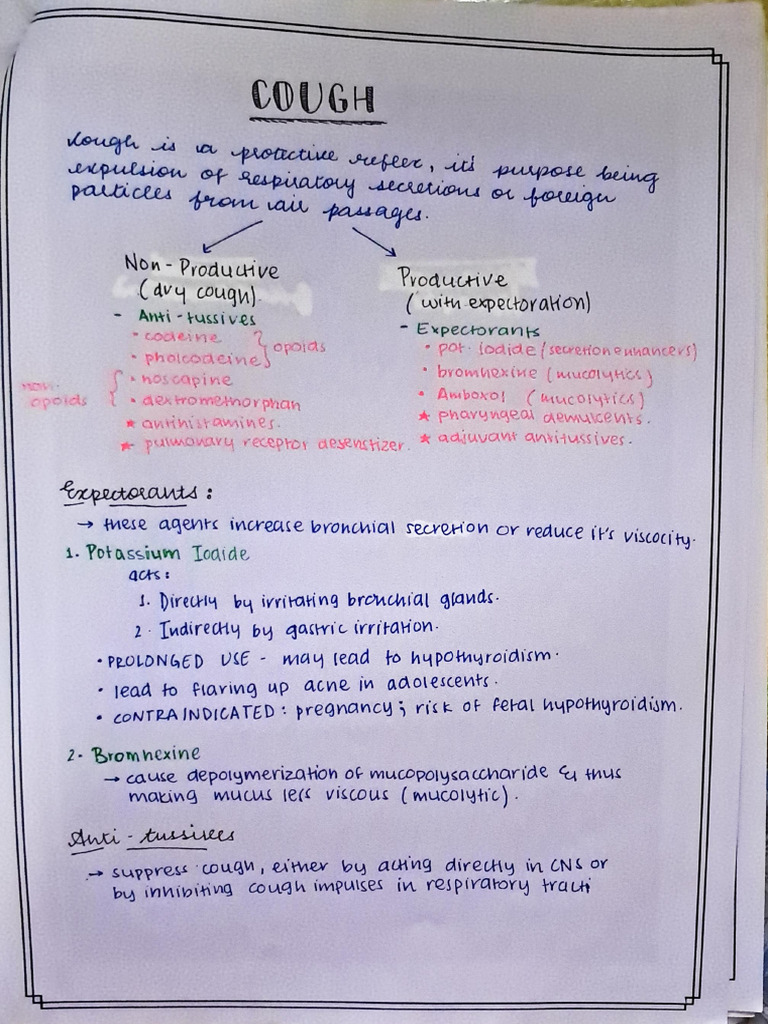 COUGH
Cough is a protective reflex, it's purpose being
expulsion of respiratory secretions or foreign
particles from air passages.
Non-Productive
(dry cough)
- Anti-tussives
• codeine
• pholcodeine } opoids
non-opoids { • noscapine
• dextromethorphan
★ antihistamines.
★ pulmonary receptor desenstizer.
Productive
(with expectoration)
- Expectorants
• pot. iodide (secretion enhancers)
• bromhexine (mucolytics)
• Amboxol (mucolytics)
★ pharyngeal demulscents.
★ adjuvant antitussives.
Expectorants:
→ these agents increase bronchial secretion or reduce it's viscocity.
1. Potassium Iodide
acts:
1. Directly by irritating bronchial glands.
2. Indirectly by gastric irritation.
• PROLONGED USE - may lead to hypothyroidism.
• lead to flaring up acne in adolescents.
• CONTRAINDICATED: pregnancy; risk of fetal hypothyroidism.
2. Bromhexine
→ cause depolymerization of mucopolysaccharide & thus
making mucus less viscous (mucolytic).
Anti-tussives
→ suppress cough, either by acting directly in CNS or
by inhibiting cough impulses in respiratory tract